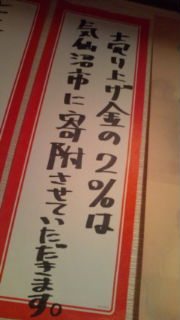 売り上げ金の2%は
気仙沼市に寄附させていただきます。